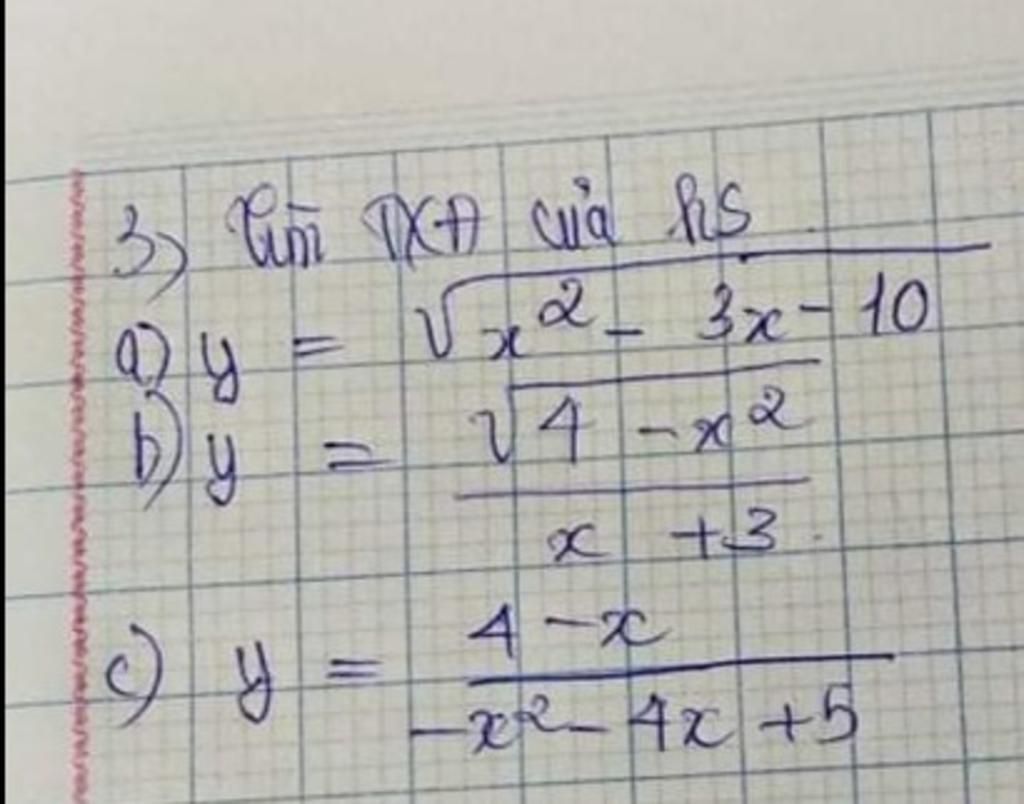 3) Tìm TXĐ của hs
a) y = √(x² - 3x - 10)
b) y = √(4 - x²) / (x + 3)
c) y = (4 - x) / (-x² - 4x + 5)